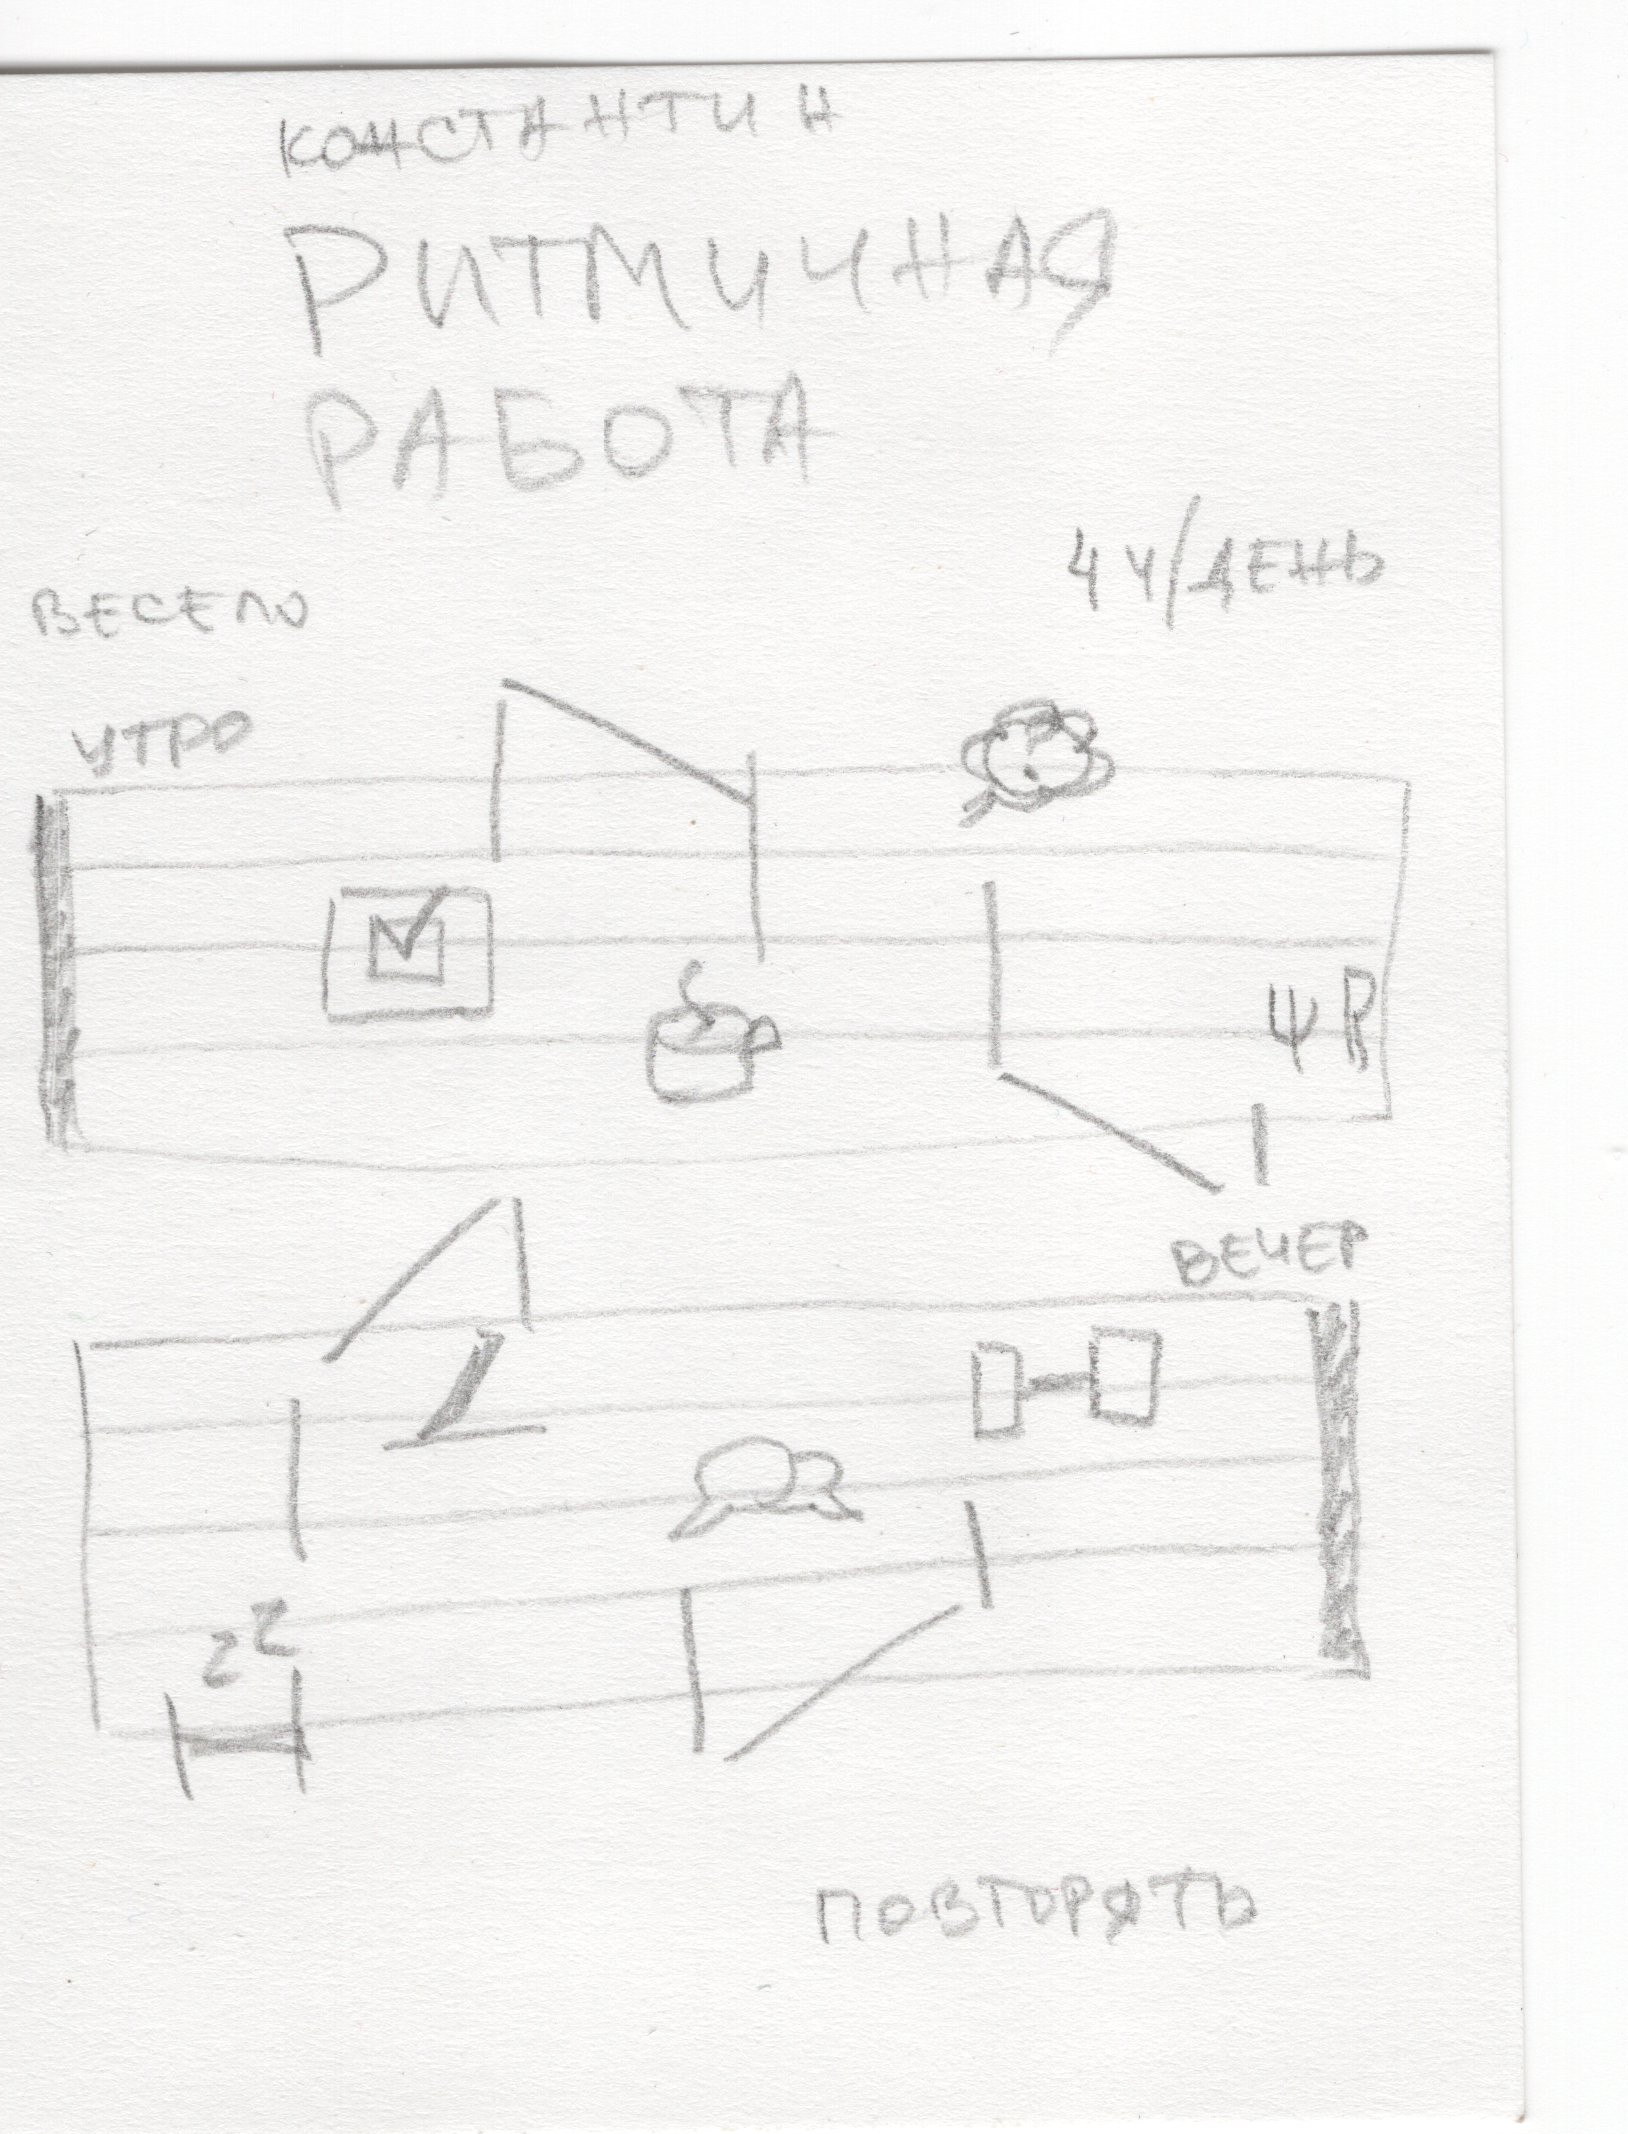 КОНСТАНТИН
РИТМИЧНАЯ
РАБОТА
4 Ч/ДЕНЬ
ВЕСЕЛО
УТРО
ВЕЧЕР
zz
ПОВТОРЯТЬ